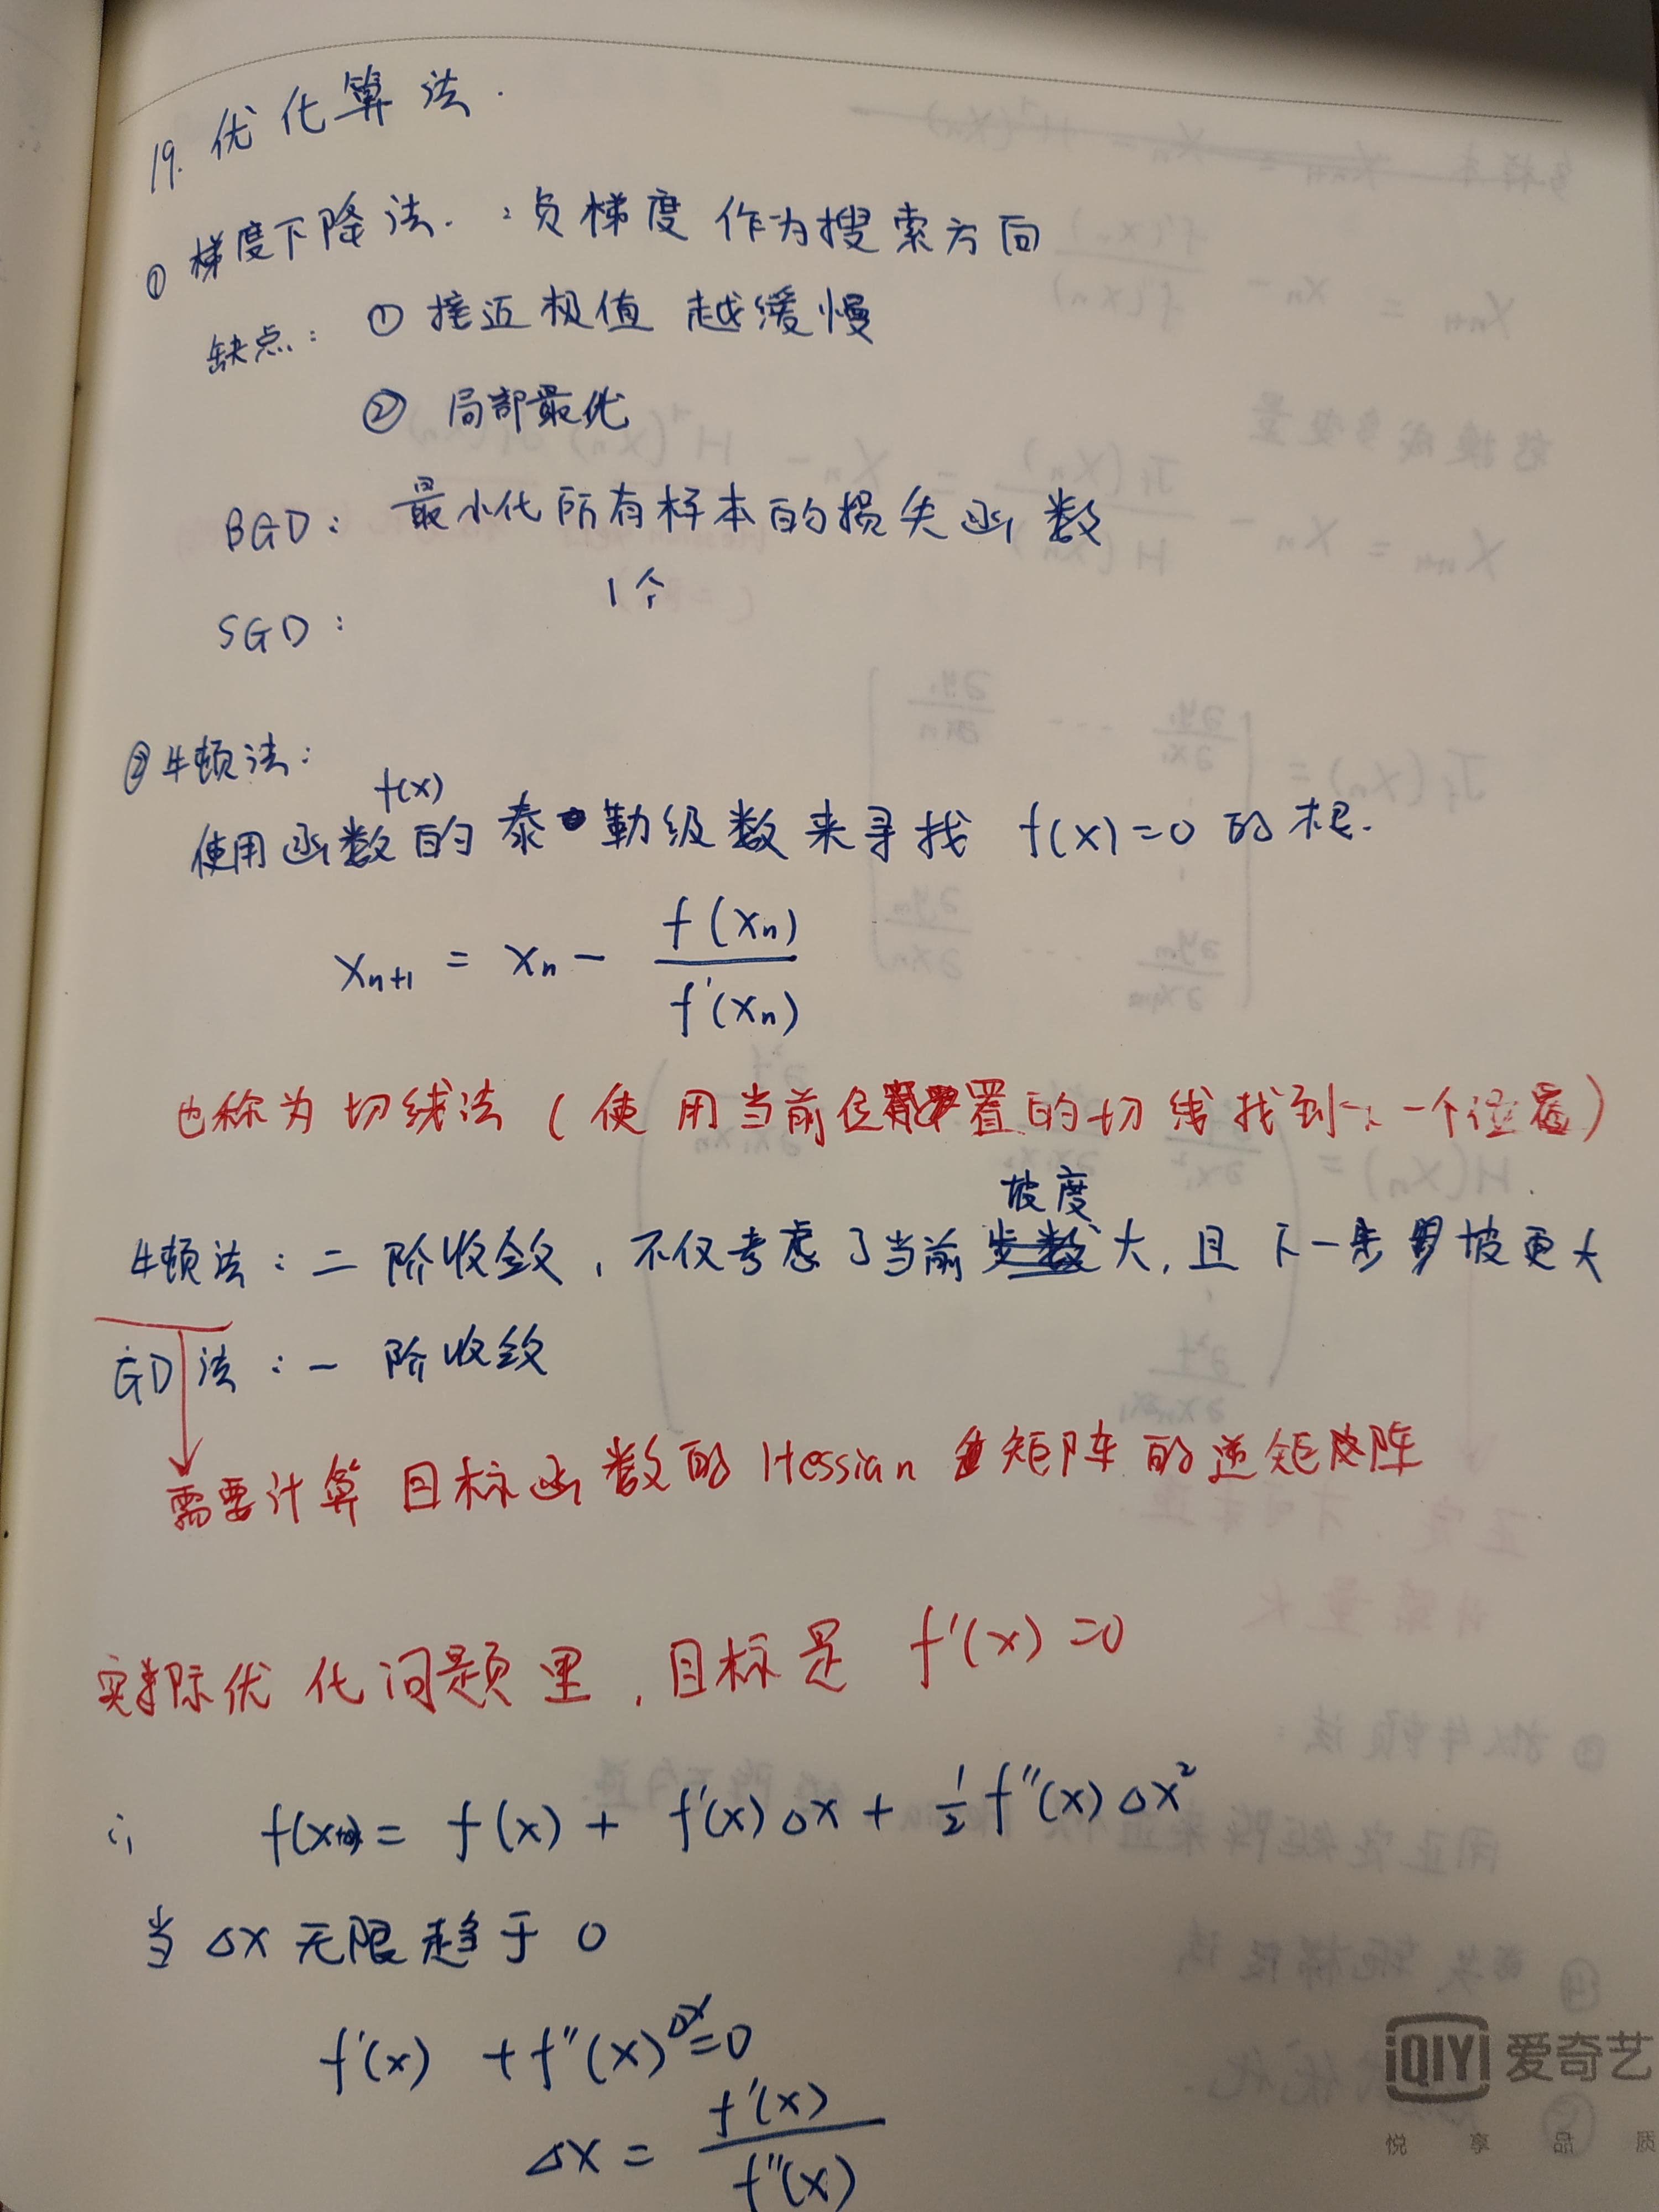 19. 优化算法.
① 梯度下降法. : 负梯度作为搜索方向
缺点: ① 接近极值越缓慢
② 局部最优
BGD: 最小化所有样本的损失函数
SGD: 1个
② 牛顿法:
f(x)
使用函数的泰勒级数来寻找 f(x)=0 的根.
Xn+1 = Xn - f(Xn) / f'(Xn)
也称为切线法 (使用当前位置的切线找到下一个位置)
坡度
牛顿法: 二阶收敛, 不仅考虑了当前步数大, 且下一步坡更大
GD法: 一阶收敛
需要计算目标函数的 Hessian 矩阵的逆矩阵
实际优化问题里, 目标是 f'(x)=0
∴ f(x+Δx) = f(x) + f'(x)Δx + ½f''(x)Δx²
当 Δx 无限趋于 0
f'(x) + f''(x)Δx=0
Δx = f'(x) / f''(x)
iQIYI 爱奇艺
悦享品质